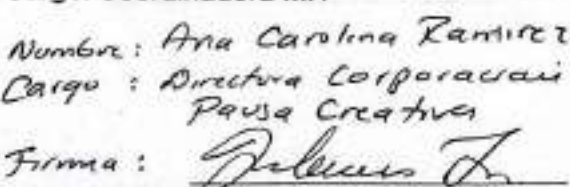 Nombre: Ana Carolina Ramirez
Cargo : Directora Corporación
Pausa Creativa
Firma :